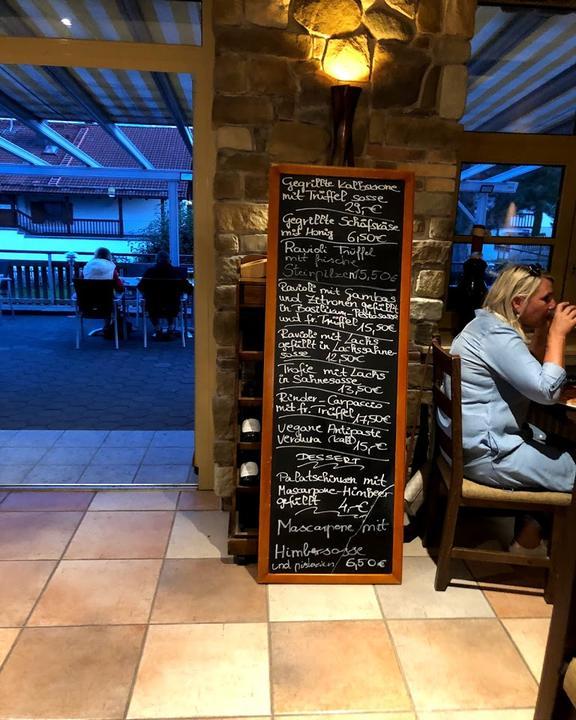 Gegrillte Kalbsarone
mit Trüffel sosse
29,-€
Gegrillte Schafskäse
mit Honig 6,50€
Ravioli Trüffel
mit frische
Steinpilzen 15,50€
Ravioli mit Gambas
und Zitronen gefüllt
in Basilikum-
und fr. Trüffel 15,50€
Ravioli mit Lachs
gefüllt in Lachssahne-
sosse 12,50€
Trofie mit Lachs
in Sahnesosse
13,50€
Rinder-Carpaccio
mit fr. Trüffel 17,50€
Vegane Antipaste
Verdura (kalt) 15,-€
DESSERT
Palatschinken mit
Mascarpone-Himbeer
gefüllt 4,-€
Mascarpone mit
Himbersosse
und pistazien 6,50€